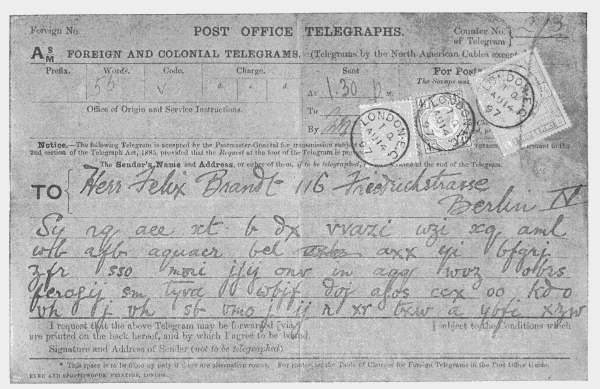 Foreign No.
POST OFFICE TELEGRAPHS.
Counter No. of Telegram
A S M FOREIGN AND COLONIAL TELEGRAMS. (Telegrams by the North American Cables excepted
Prefix. Words. Code. Charge. Sent For Post
55
At 1.30
To
By
Office of Origin and Service Instructions.
LONDON.E.C.
AU 14
97
LONDON.E.C.
AU 14
97
Notice.—The following Telegram is accepted by the Postmaster-General for transmission subject
2nd section of the Telegraph Act, 1885, provided that the Request at the foot of the Telegram is
The Sender's Name and Address, or either of them, if to be telegraphed, at the end of the Telegram.
TO Herr Felix Brandt 116 Friedrichstrasse
Berlin N
Sy rq aee xt b dx vvazi wzi xq aml
wlb afb aquacr bel axx yi bfgrj
zfr sso mori ijy onv in agq wvz obrs
ferogij sm tyva wbjf doj agos ccx oo kd o
vh j vh sb vmo j ij n xr txw a ybfi xzyw
I request that the above Telegram may be forwarded (via) subject to the conditions which
are printed on the back hereof, and by which I agree to be bound.
Signature and Address of Sender (not to be telegraphed)
* This space is to be filled up only if there are alternative routes. For routes see the Table of Charges for Foreign Telegrams in the Post Office Guide.
EYRE AND SPOTTISWOODE, PRINTERS, LONDON.